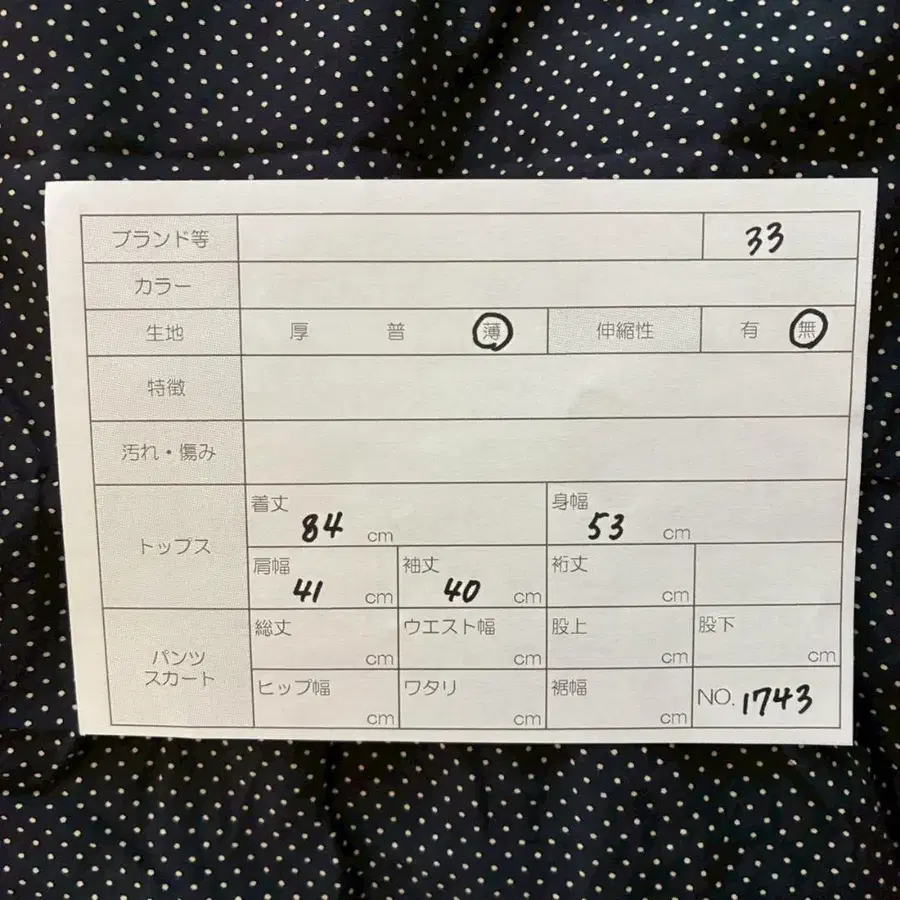 ブランド等 33
カラー
生地 厚 普 薄 伸縮性 有 無
特徴
汚れ・傷み
トップス
着丈 84 cm 身幅 53 cm
肩幅 41 cm 袖丈 40 cm 裄丈 cm
パンツ
スカート
総丈 cm ウエスト幅 cm 股上 cm 股下 cm
ヒップ幅 cm ワタリ cm 裾幅 cm NO. 1743